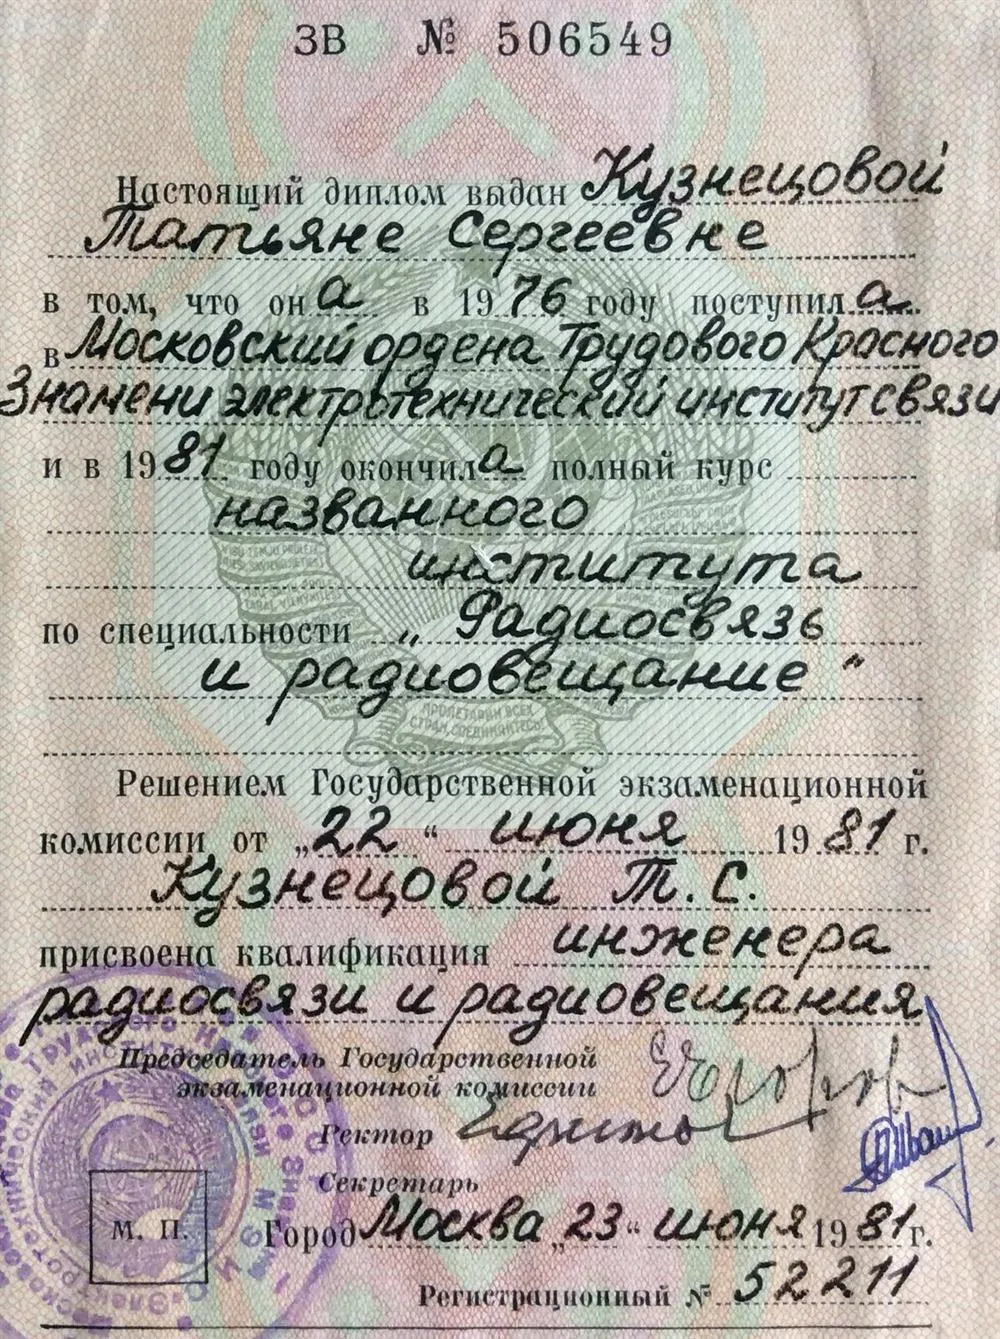 ЗВ № 506549
Настоящий диплом выдан Кузнецовой
Татьяне Сергеевне
в том, что он а в 1976 году поступил а
в Московский ордена Трудового Красного
Знамени электротехнический институт связи
и в 1981 году окончил а полный курс
названного
института
по специальности „Радиосвязь
и радиовещание"
Решением Государственной экзаменационной
комиссии от „22“ июня 1981 г.
Кузнецовой Т. С.
присвоена квалификация инженера
радиосвязи и радиовещания
Председатель Государственной
экзаменационной комиссии
Ректор
Секретарь
М. П. Город Москва „23“ июня 1981 г.
Регистрационный № 52211
ПРОЛЕТАРИИ ВСЕХ
СТРАН, СОЕДИНЯЙТЕСЬ!